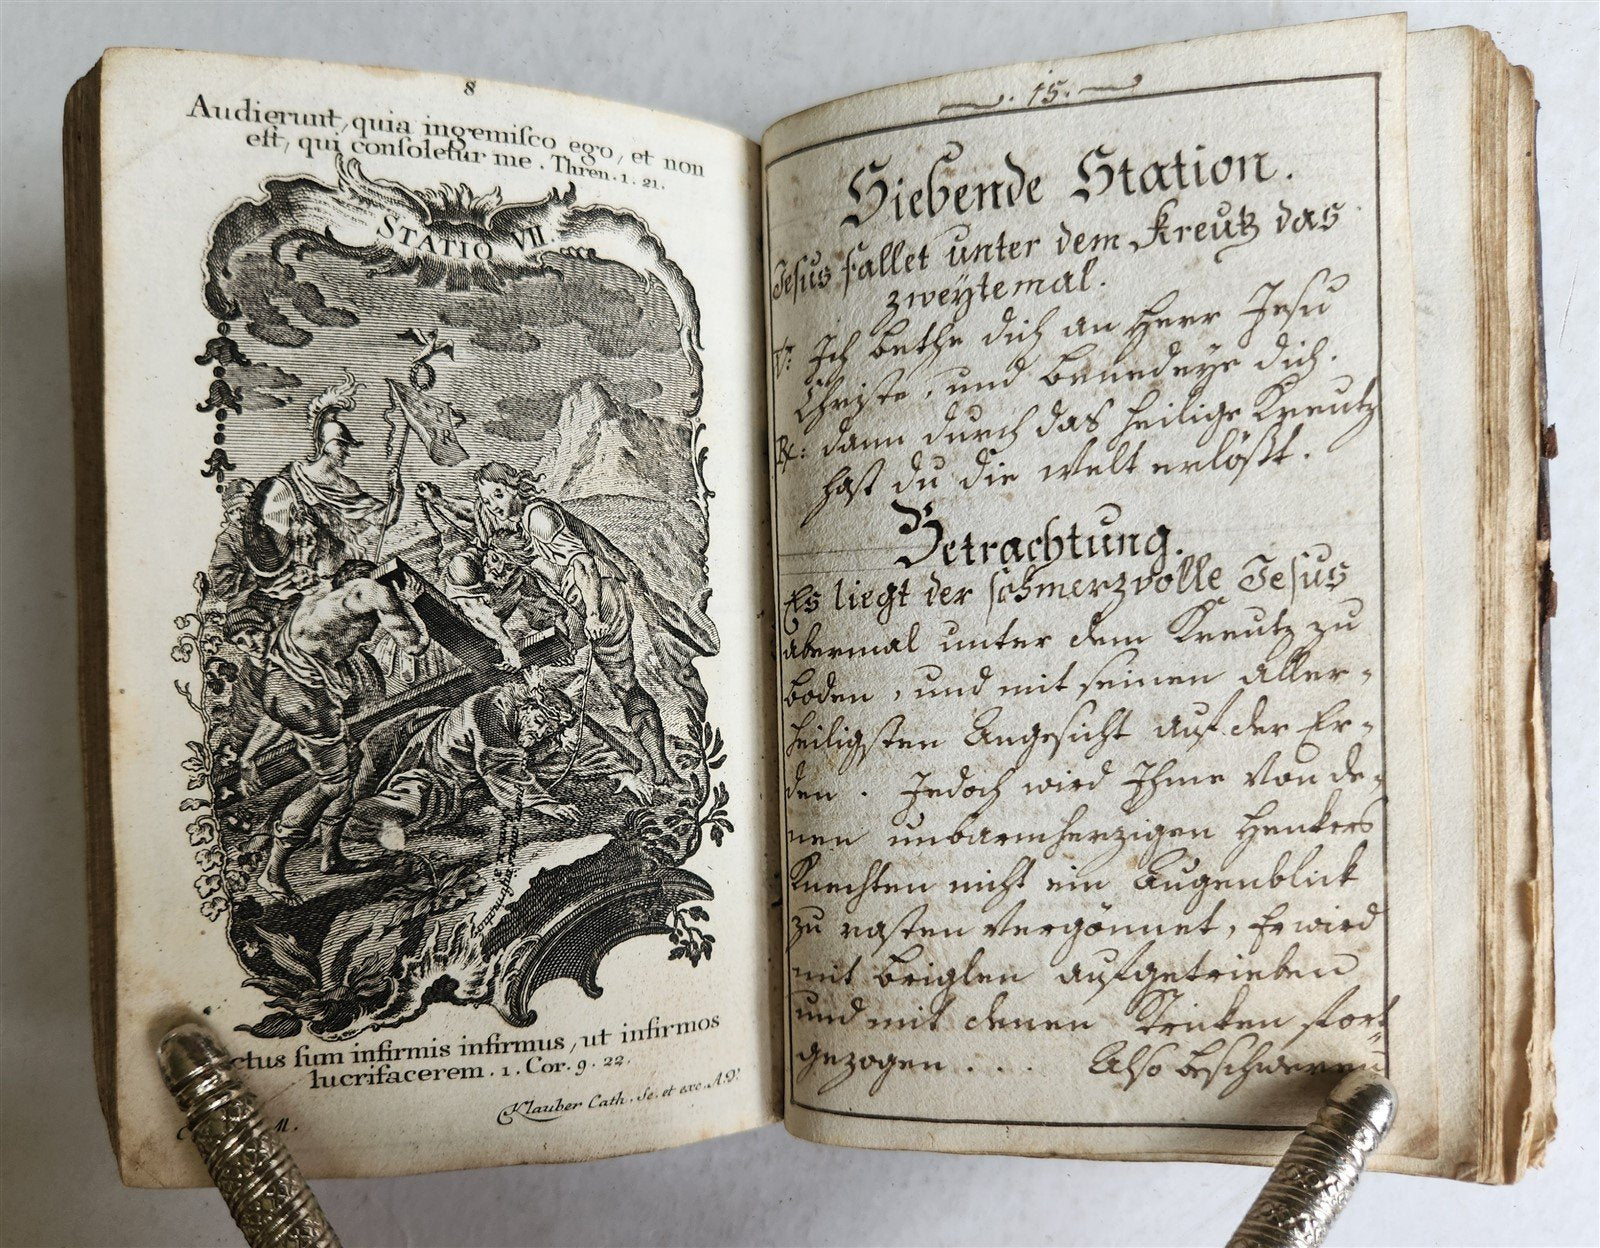 8
Audierunt, quia ingemiſco ego, et non
eſt, qui conſoletur me. Thren. 1. 21.
STATIO VII.
ctus ſum infirmis infirmus, ut infirmos
lucrifacerem. 1. Cor. 9. 22.
Klauber Cath. Sc. et exc. A.V.
15.
Siebende Station.
Jesus fallet unter dem Kreutz das
zweytemal.
V: Ich bethe dich an Herr Jesu
Christe, und benedeye dich.
R: dann durch das heilige Kreutz
hast du die Welt erlößt.
Betrachtung.
Es liegt der schmerzvolle Jesus
abermal unter dem Kreutz zu
boden, und mit seinen Aller-
heiligsten Angesicht auf der Er-
den. Jedoch wird Ihme von de-
nen unbarmherzigen Henkers
Knechten nicht ein Augenblick
zu rasten vergönnet, Er wird
mit briglen aufgetrieben
und mit denen Stricken fort
gezogen . . . Also beschweren